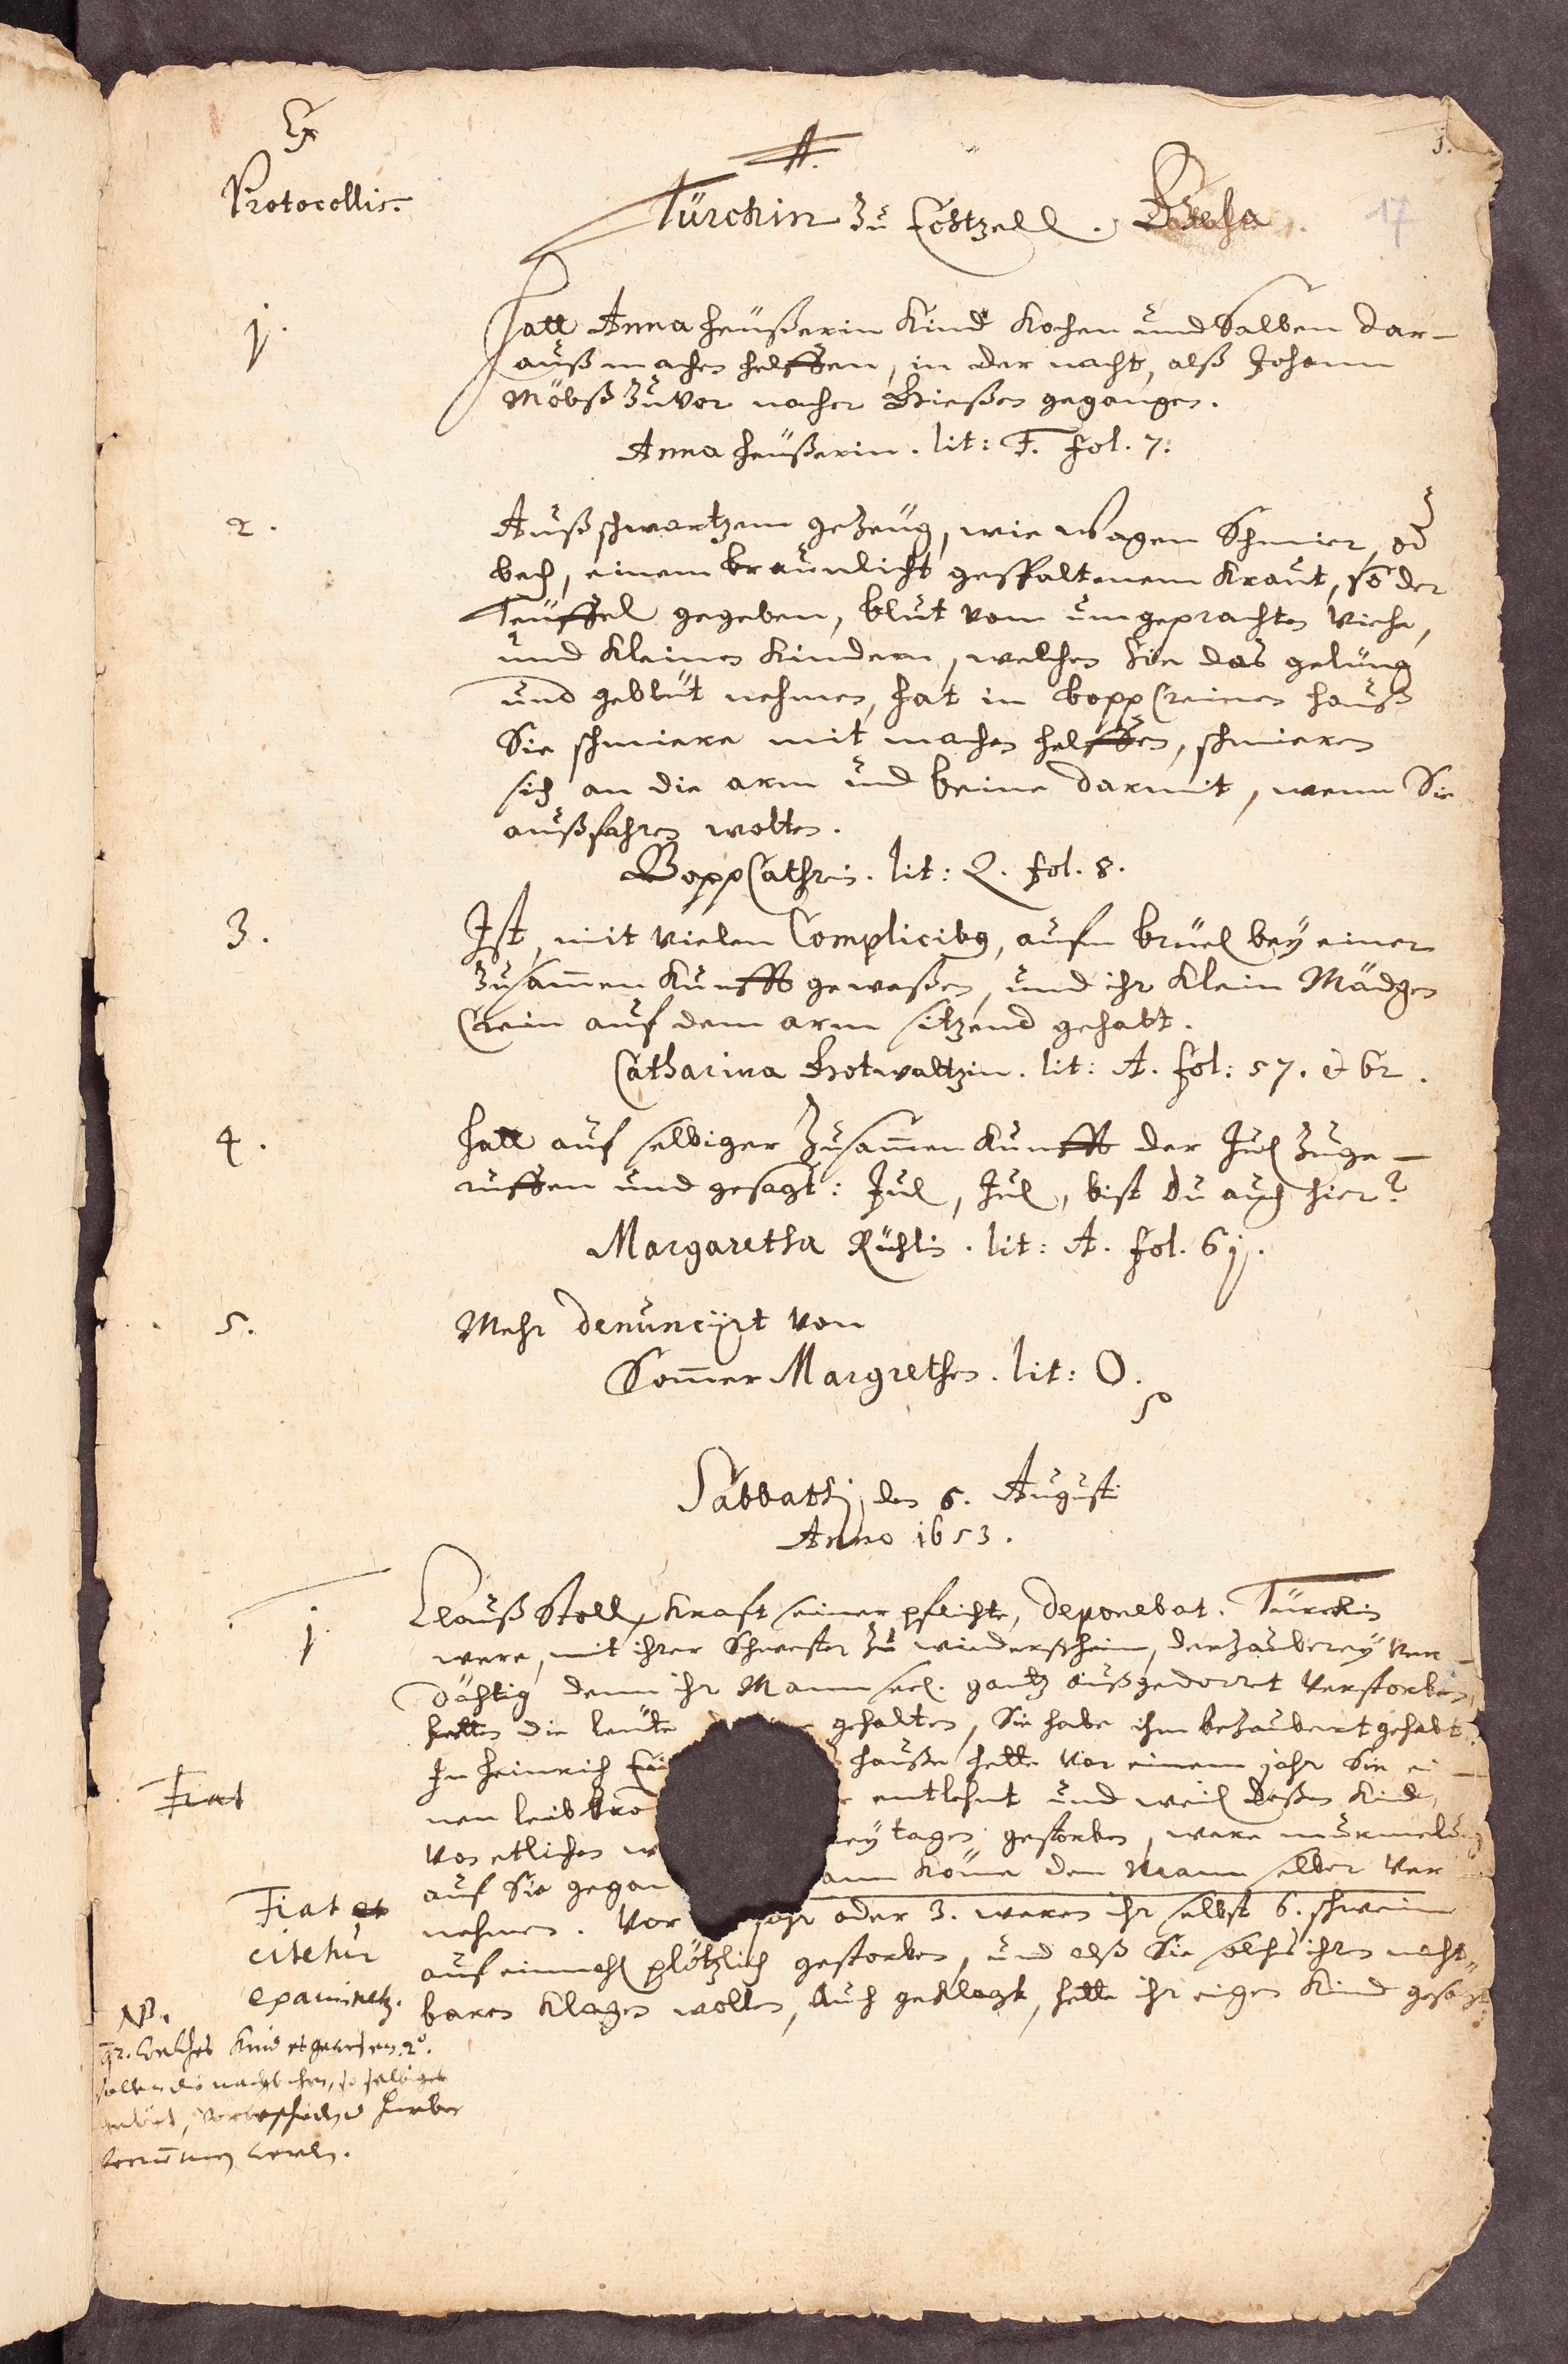 Ex
Protocollis.
#.
1.
17
Türckin zu Echtzell.
1.
Hatt Anna Heüßerin Kind kochen und Salben dar-
auß machen helffen, in der nacht, alß Johann
Möbß zuvor nacher Gießen gegangen.
Anna Heüßerin. lit: F. fol. 7.
2.
Auß schwartzem gezeug, wie Wagen Schmier, od
bech, einem breunlicht gespaltenem Kraut, so der
Teüffel gegeben, blut vom umgeprachten Viehe,
und kleinen Kindern, welchen sie das gelüng
und geblüt nehmen, hat in Bopp Creinen hauß
Sie schmiere mit machen helffen, schmieren
sich an die arm und beine darmit, wenn Sie
außfahren wolten.
Bopp Cathrin. lit: Q. fol. 8.
3.
Ist, mit vielen Complicibg, aufm brüel bey einer
Zusam̄en Kunfft geweßen, und ihr klein Mädgen
Crein auf dem arm sitzend gehabt.
Catharina Gotwaltzin. lit: A. fol: 57. & 62.
4.
Hatt auf selbiger Zusam̄en Kunfft der Jul Zuge-
ruffen und gesagt: Jul, Jul, bist du auch hier?
Margaretha Rühlin. lit: A. fol. 61.
5.
Mehr denuncijrt von
Som̄er Margrethen. lit: O.
Sabbathj, den 6. Augusti
Anno 1653.
1.
Clauß Stoll, Kraft seiner pflichte, deponebat. Türckin
were, mit ihrer Schwester zu wiederßheim, der Zauberey ver-
dächtig denn ihr Mann seel. gantz außgedorret verstorben,
hetten die leüte gehalten, Sie habe ihn bezaubert gehabt.
In Heinrich hauße hette vor einem jahr Sie ei-
Fiat
nen leib bro entlehnt und weil deßen Kind,
von etlichen w ey tagen gestorben, were murmelung
auf Sie gegan ann köm̄e den Mann selber ver
Fiat et
nehmen. Vor jahr oder 3. weren ihr selbst 6. schwein
citetur
auf einmahl plötzlich gestorben, und alß Sie solches ihren nach-
examinetz.
baren klagen wollen, Auch geklagt, hette ihr eigen Kind gesagt
NB.
qr. welches Kind es gewesen. 2°.
sollen die nachbahren, so selbiges
gehört, hierüber
vernom̄en werdn.